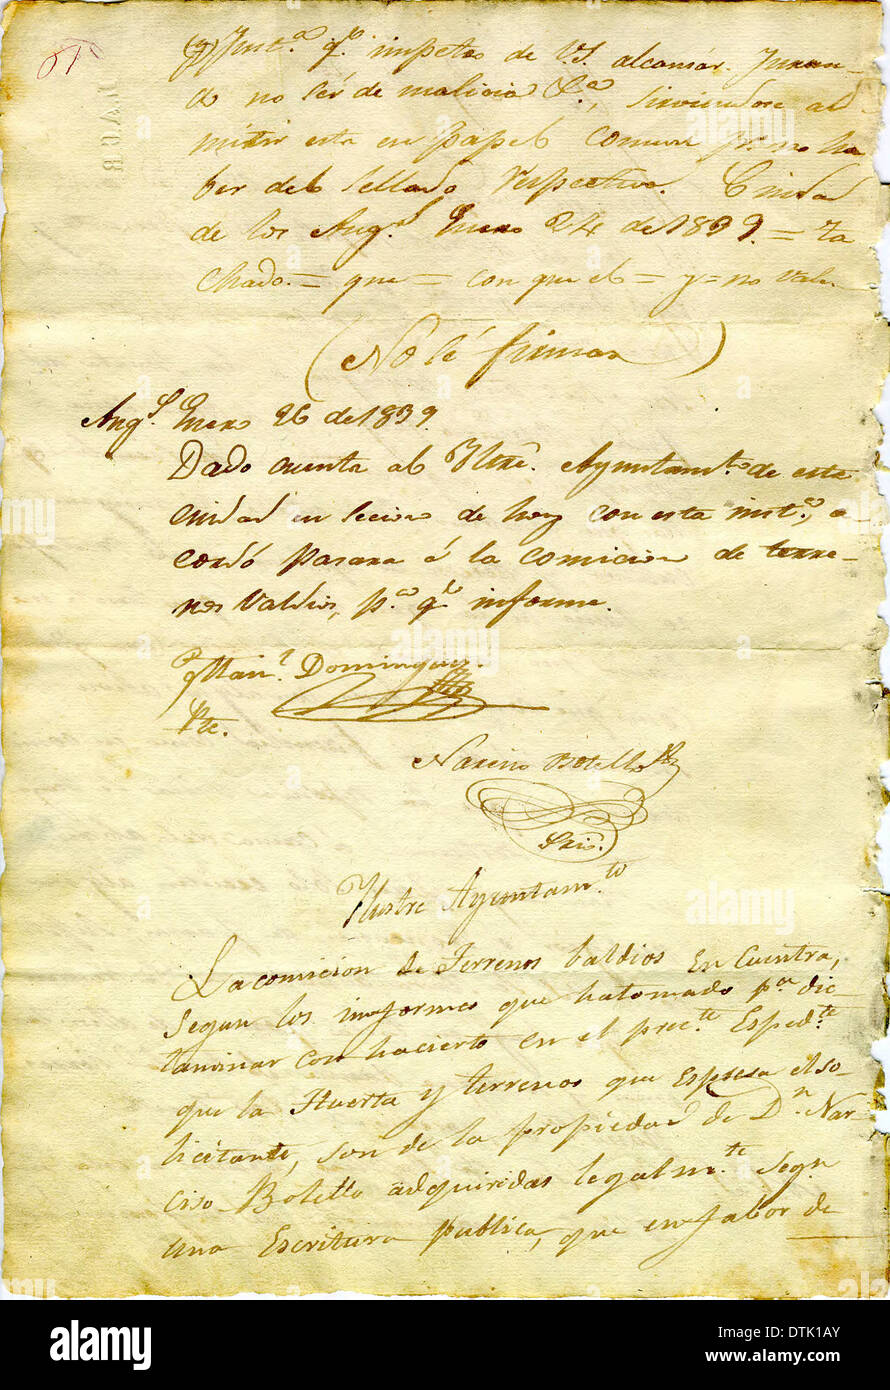 Just.ª q.e impetro de V.S. alcansár. Juran-
do no ser de malicia &.ª, sirviendose ad
mitir esta en papel comun pr. no ha
ber del sellado respectivo. Ciudad
de los Ang.s Enero 24 de 1839. = Ta
chado. = que = con que el = y = no vale
(No sé firmar)
Ang.s Enero 26 de 1839.
Dado cuenta al Yltrê. Ayuntam.to de esta
ciudad en secion de hoy con esta inst.ª, a-
cordó pasara á la comicion de terre-
nos valdios, p.ª q.e informe.
Man.l Dominguez.
Pte.
Narciso Botello
Srio.
Ylustre Ayuntam.to
La comicion de Terrenos baldios en cuentra,
segun los informes que ha tomado p.ª dic-
taminar con hacierto en el prec.te Esped.te
que la Huerta y terrenos que espresa el so-
licitante, son de la propiedad de D.n Nar-
ciso Botello adquiridas legalm.te segn.
una Escritura publica, que en fabor de
alamy
Image ID: DTK1AY
www.alamy.com